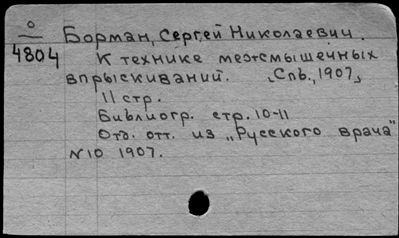 О
4804
Борман, Сергей Николаевич.
К технике межмышечных
впрыскиваний. [Спб., 1907]
11 стр.
Библиогр. стр. 10-11
Отд. отт. из „Русского врача"
N10 1907.